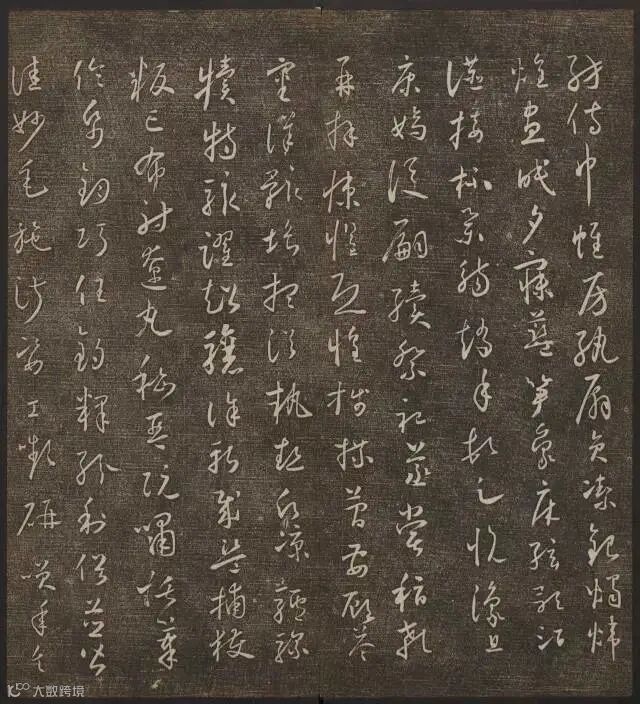 紡侍巾帷房紈扇員潔銀燭煒
煌晝眠夕寐藍筍象床弦歌酒
讌接杯舉觴矯手頓足悅豫且
康嫡後嗣續祭祀蒸嘗稽顙
再拜悚懼恐惶牋牒簡要顧答
審詳骸垢想浴執熱願涼驢騾
犢特駭躍超驤誅斬賊盜捕獲
叛亡布射遼丸嵇琴阮嘯恬筆
倫紙鈞巧任釣釋紛利俗並皆
佳妙毛施淑姿工顰妍笑年矢
大数跨境